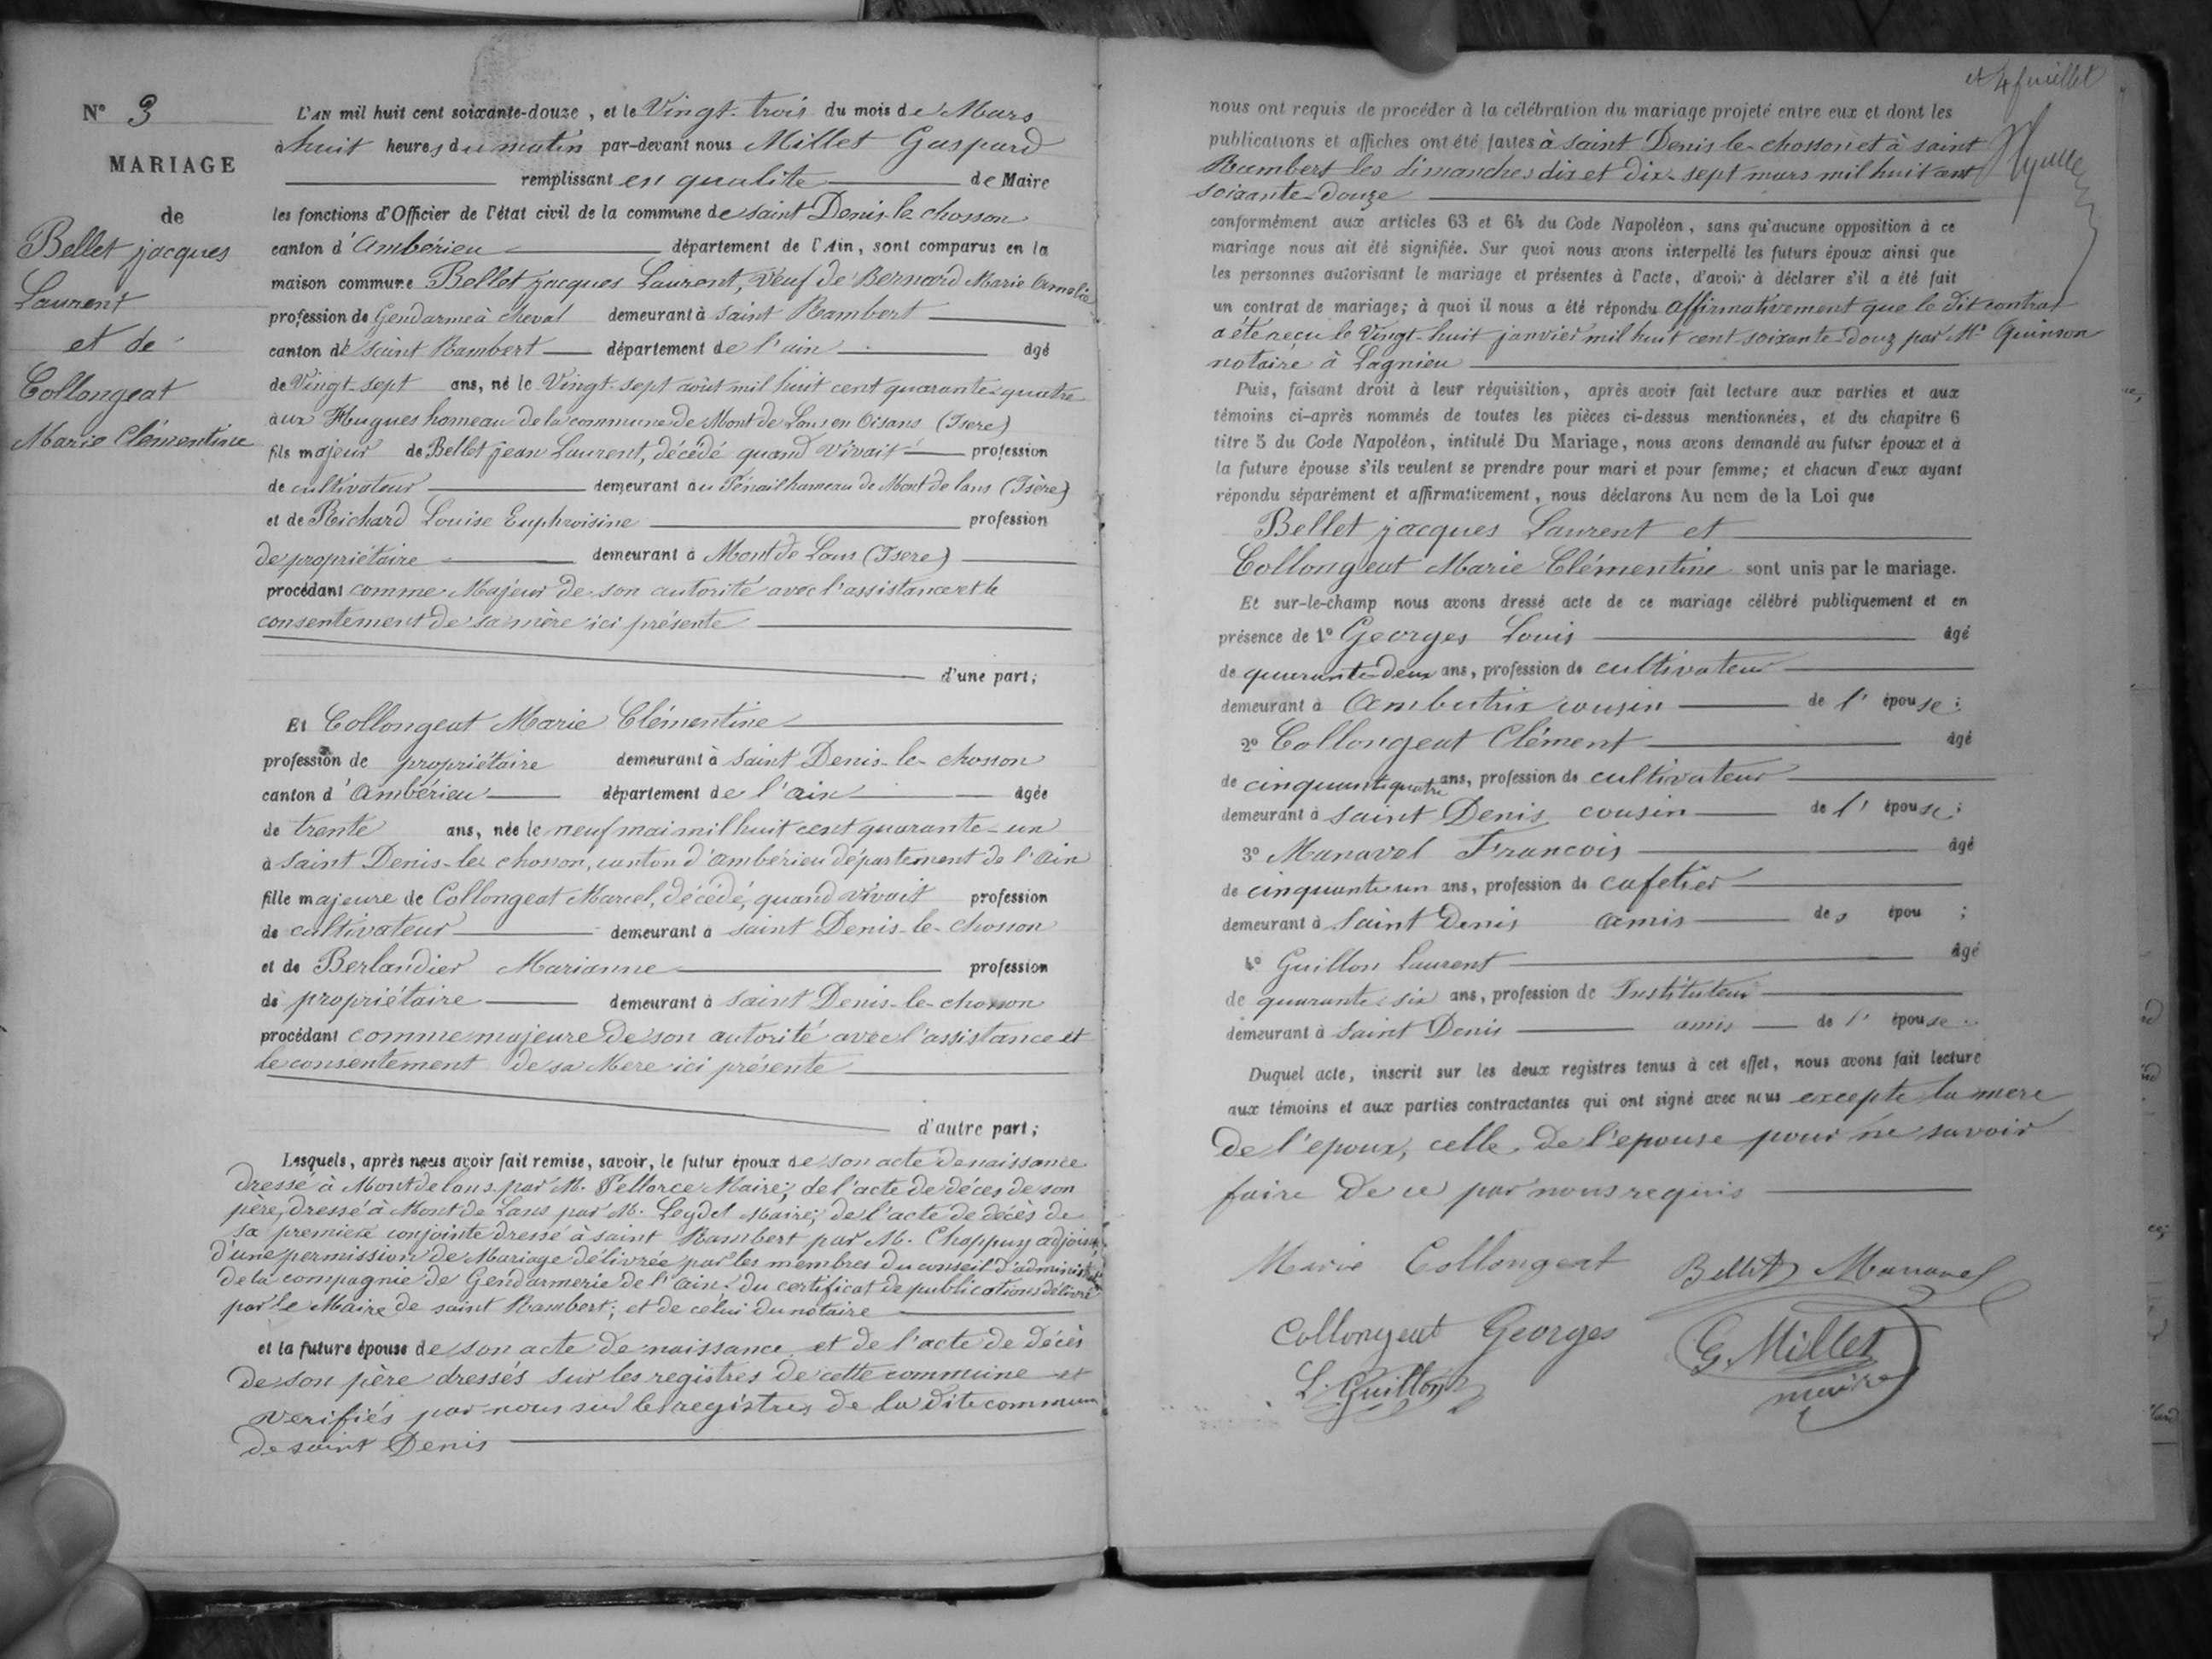 N° 3
MARIAGE
de
Bellet jacques
Laurent
et de
Collongeat
Marie Clémentine
L'AN mil huit cent soixante-douze, et le Vingt-trois du mois de Mars
à huit heures du matin par-devant nous Millet Gaspard
remplissant en qualité de Maire
les fonctions d'Officier de l'état civil de la commune de saint Denis-le chosson
canton d'Ambérieu département de l'Ain, sont comparus en la
maison commune Bellet jacques Laurent, Veuf de Bernard Marie Amelie
profession de Gendarme à cheval demeurant à Saint Rambert
canton de saint Rambert département de l'ain âgé
de Vingt-sept ans, né le Vingt-sept août mil huit cent quarante-quatre
aux Hugues hameau de la commune de Mont de Lans en Oisans (Isere)
fils majeur de Bellet jean Laurent, décédé quand vivait profession
de cultivateur demeurant au hameau de Mont de lans (Isère)
et de Richard Louise Euphroisine profession
de propriétaire demeurant à Mont de Lans (Isere)
procédant comme Majeur de son autorité avec l'assistance et le
consentement de sa mère ici présente
d'une part;
Et Collongeat Marie Clémentine
profession de propriétaire demeurant à Saint Denis-le-chosson
canton d'Ambérieu département de l'ain âgée
de trente ans, née le neuf mai mil huit cent quarante-un
à Saint Denis-le chosson, canton d'ambérieu département de l'ain
fille majeure de Collongeat Marcel, décédé, quand vivait profession
de cultivateur demeurant à saint Denis-le-chosson
et de Berlandier Marianne profession
de propriétaire demeurant à Saint Denis-le-chosson
procédant comme majeure de son autorité avec l'assistance et
le consentement de sa Mere ici présente
d'autre part;
Lesquels, après nous avoir fait remise, savoir, le futur époux de son acte de naissance
dressé à Mont de lans par M. Pellorce Maire; de l'acte de décès de son
père, dressé à Mont de Lans par M. Leydet Maire; de l'acte de décès de
sa premiere conjointe dressé à saint Rambert par M. Choppuy adjoint
d'une permission de Mariage délivrée par les membres du conseil d'administ
de la compagnie de Gendarmerie de l'ain; du certificat de publications délivré
par le Maire de saint Rambert; et de celui du notaire
et la future épouse de son acte de naissance et de l'acte de décès
de son père dressés sur les registres de cette commune et
verifiés par nous sur les registres de la dite commune
de saint Denis
et 4 feuillet
nous ont requis de procéder à la célébration du mariage projeté entre eux et dont les
publications et affiches ont été faites à saint Denis le-chosson et à saint
Rambert les dimanches dix et dix-sept mars mil huit cent
soixante-douze
conformément aux articles 63 et 64 du Code Napoléon, sans qu'aucune opposition à ce
mariage nous ait été signifiée. Sur quoi nous avons interpellé les futurs époux ainsi que
les personnes autorisant le mariage et présentes à l'acte, d'avoir à déclarer s'il a été fait
un contrat de mariage; à quoi il nous a été répondu affirmativement que le dit contrat
a été reçu le Vingt-huit janvier mil huit cent soixante-douz par Me Quinson
notaire à Lagnieu
Puis, faisant droit à leur réquisition, après avoir fait lecture aux parties et aux
témoins ci-après nommés de toutes les pièces ci-dessus mentionnées, et du chapitre 6
titre 5 du Code Napoléon, intitulé Du Mariage, nous avons demandé au futur époux et à
la future épouse s'ils veulent se prendre pour mari et pour femme; et chacun d'eux ayant
répondu séparément et affirmativement, nous déclarons Au nom de la Loi que
Bellet jacques Laurent et
Collongeat Marie Clémentine sont unis par le mariage.
Et sur-le-champ nous avons dressé acte de ce mariage célébré publiquement et en
présence de 1° Georges Louis âgé
de quarante-deux ans, profession de cultivateur
demeurant à Ambutrix cousin de l'épouse;
2° Collongeat Clément âgé
de cinquante quatre ans, profession de cultivateur
demeurant à Saint Denis cousin de l'épouse;
3° Manavel Francois âgé
de cinquante un ans, profession de cafetier
demeurant à Saint Denis amis des épou ;
4° Guillon Laurent âgé
de quarante-six ans, profession de Instituteur
demeurant à Saint Denis amis de l'épouse.
Duquel acte, inscrit sur les deux registres tenus à cet effet, nous avons fait lecture
aux témoins et aux parties contractantes qui ont signé avec nous excepte la mere
de l'epoux, celle de l'epouse pour ne savoir
faire de ce par nous requis
Marie Collongeat Bellet Manavel
Collongeat Georges G. Millet
L. Guillon maire